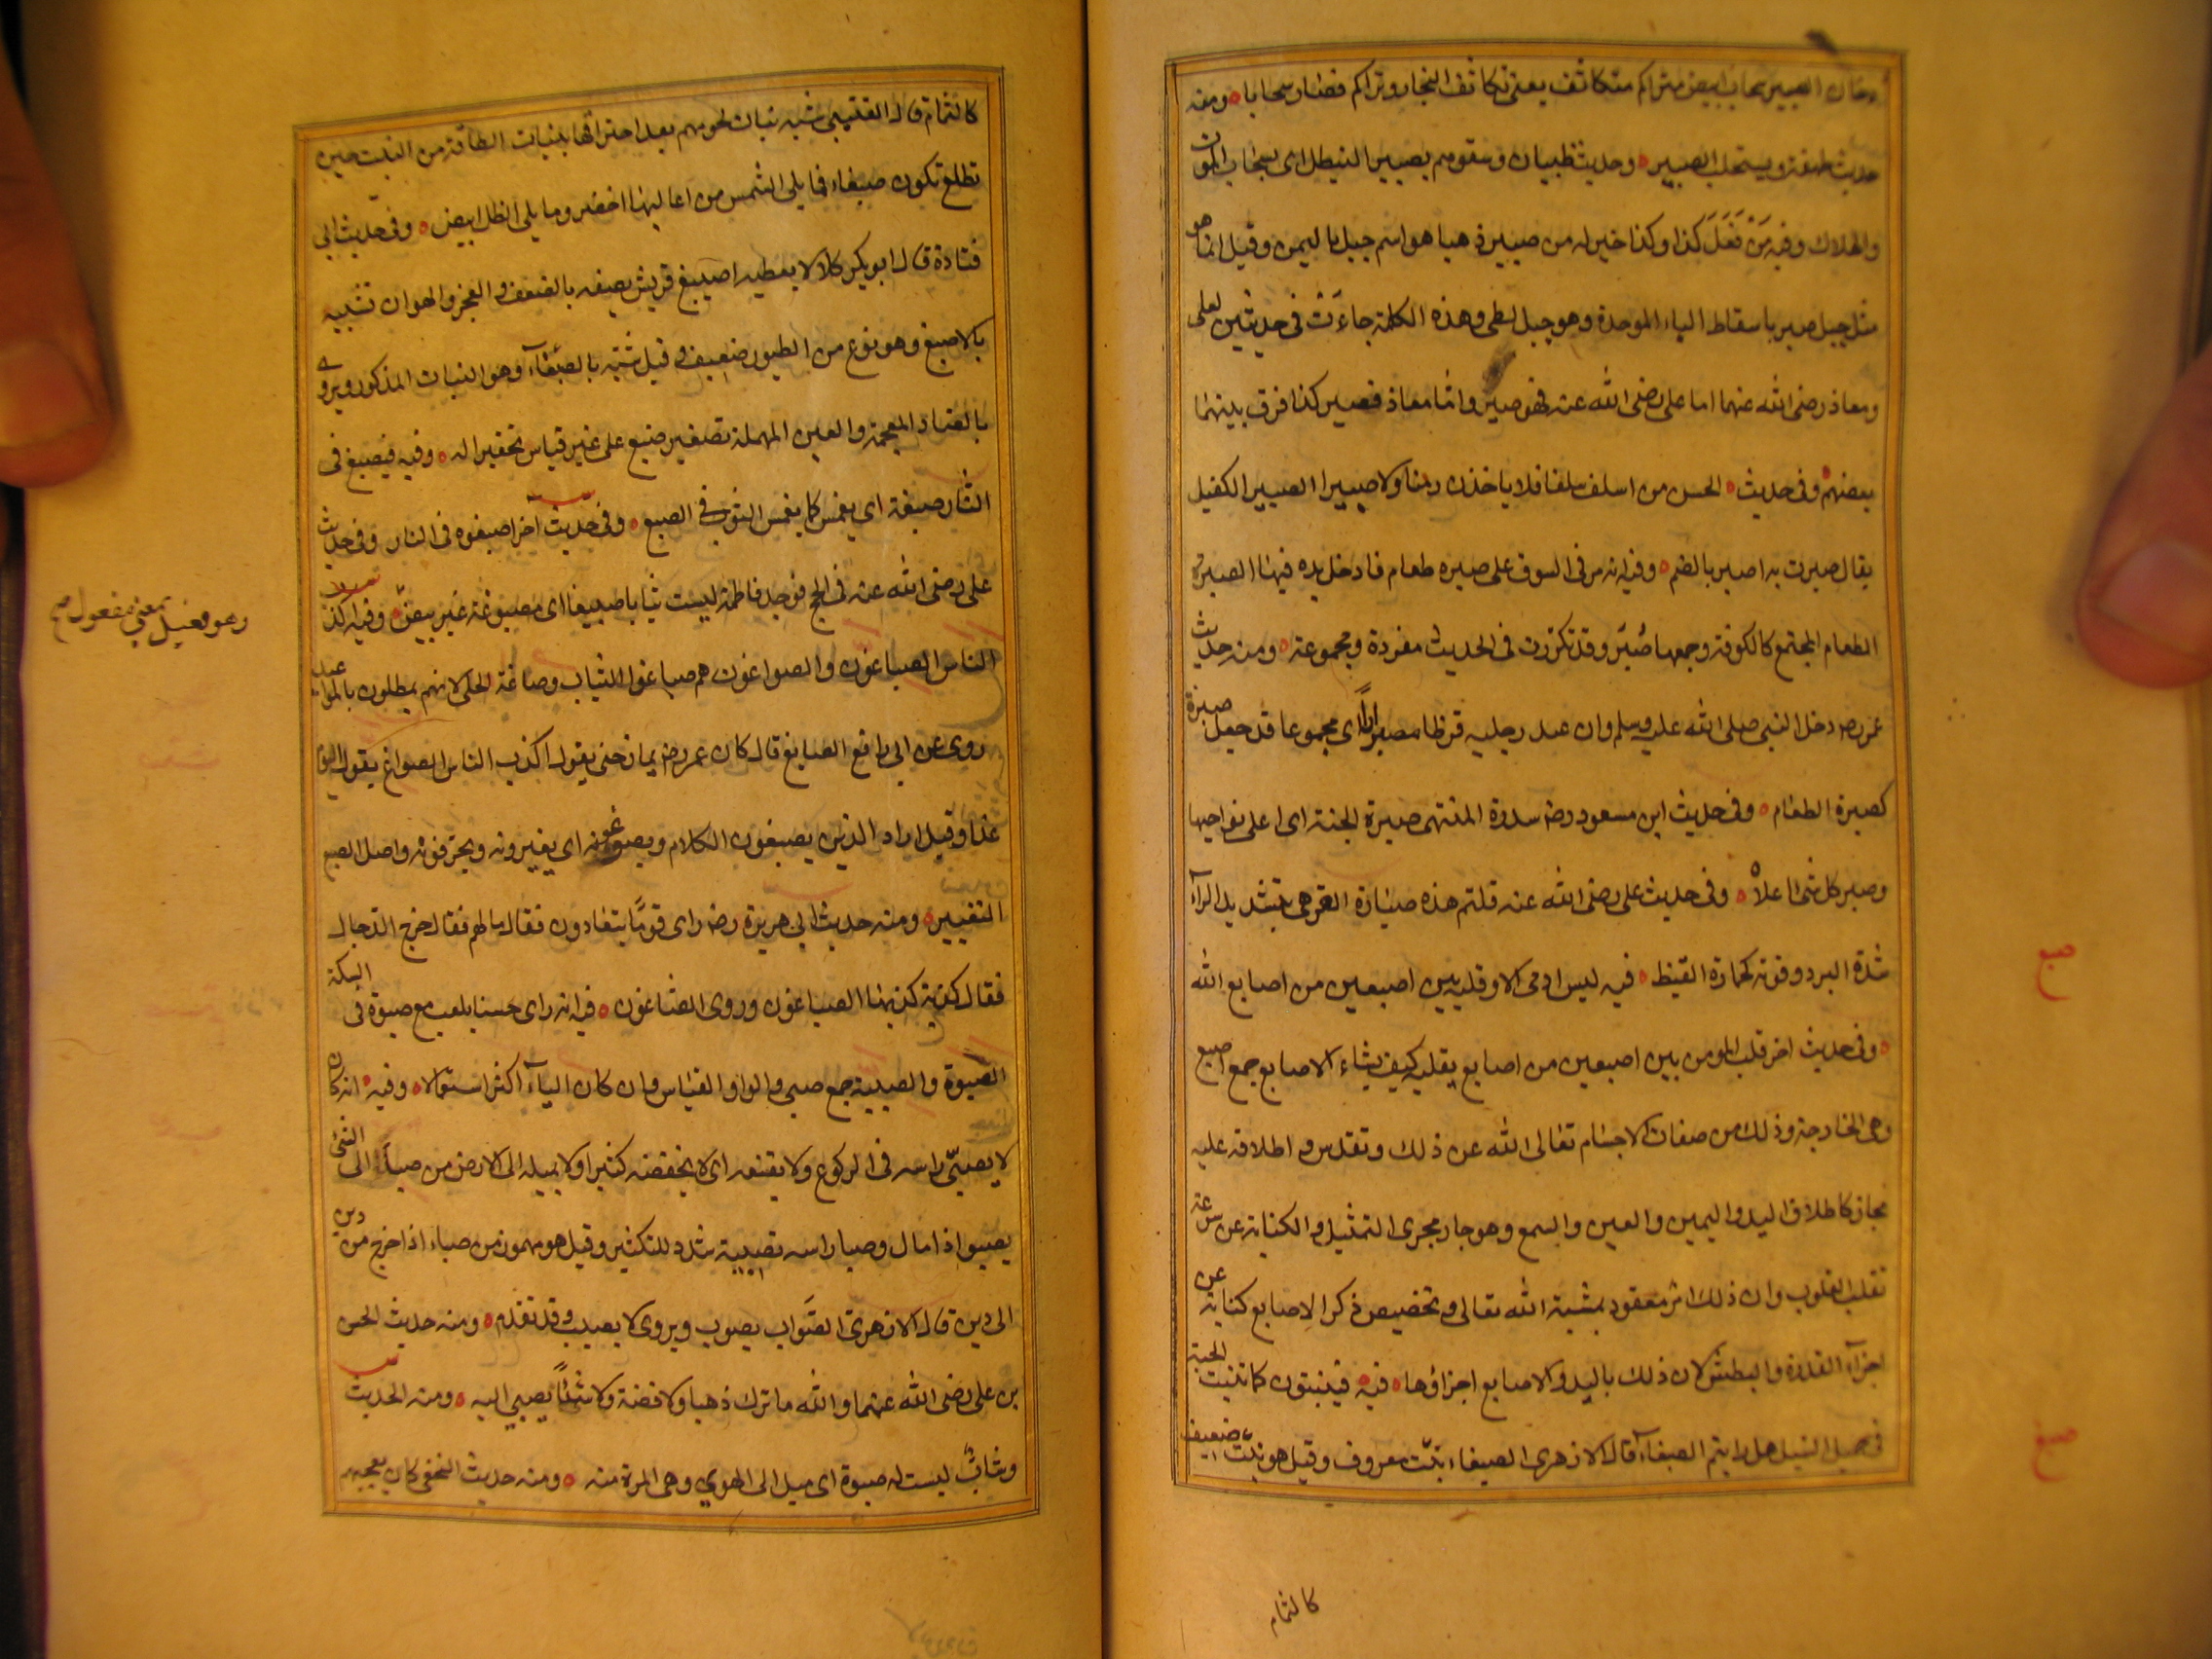 دخان الصبير سحاب ابيض متراكم متكاثف يعني تكاثف البخار وتراكم فصار سحابا ومنه
حديث طهفة ويستحلب الصبير وحديث ظبيان وسقوهم بصبير النيطل اى بسحاب الموت
والهلاك وفيه مَنْ فَعَلَ كذا وكذا خير له من صبير ذهبا هو اسم جبل باليمن وقيل انما هو
مثل جبل صير باسقاط الباء الموحدة وهو جبل لطى وهذه الكلمة جاءَتْ فى حديثين لعلى
ومعاذ رضى الله عنهما اما على رضى الله عنه فهو صير واما معاذ فصبير كذا فرق بينهما
بعضهم وفى حديث الحسن من اسلف سلفا فلا ياخذن رهنا ولا صبيرا الصبير الكفيل
يقال صبرت به اصبر بالضم وفيه انه مر فى السوق على صبره طعام فادخل يده فيها الصبرة
الطعام المجتمع كالكومة وجمعها صُبَر وقد تكررت فى الحديث مفردة ومجموعة ومنه حديث
عمر رضه دخل النبى صلى الله عليه وسلم وان عند رجليه قرظا مصبورًا اى مجموعا قد جعل صبرة
كصبرة الطعام وفى حديث ابن مسعود رضه سدرة المنتهى صبرة الجنة اى اعلى نواحيها
وصبر كل شئ اعلاه وفى حديث على رضى الله عنه قلتم هذه صبارة القر هى بتشديد الرآء
شدة البرد وقوته كحمارة القيظ فيه ليس ادمى الا وقلبه بين اصبعين من اصابع الله
وفى حديث اخر قلب المومن بين اصبعين من اصابع يقلبه كيف يشاء الاصابع جمع اصبع
وهى الجارحة وذلك من صفات الاجسام تعالى الله عن ذلك وتقدس و اطلاقه عليه
مجاز كاطلاق اليد واليمين والعين والسمع وهو جار مجرى التمثيل والكناية عن سرعة
تقلب القلوب وان ذلك امر معقود بمشية الله تعالى وتخصيص ذكر الاصابع كناية عن
اجزآء القدرة والبطش لان ذلك باليد والاصابع اجزاؤها فيه فينبتون كما تنبت الحبة
فى حميل السيل هل رايتم الصبغآء قال الازهرى الصبغاء نبت معروف وقيل هو نبت ضعيف
كالثمام
صبع
صبغ
كالثمام قال القتيبى شبه نبات لحومهم بعد احتراقها بنبات الطاقة من النبت حين
تطلع تكون صبغاء فما يلى الشمس من اعاليها اخضر وما يلى الظل ابيض وفى حديث ابى
قتادة قال ابو بكر كلا لا يعطيه اصيبغ قريش يصفه بالضعف و العجز والهوان تشبيه
بالاصبغ وهو نوع من الطيور ضعيف و قيل شبه بالصبغآء وهو النبات المذكور ويروى
بالضاد المعجمة والعين المهملة تصغير ضبع على غير قياس تحقيرا له وفيه فيصبغ فى
النار صبغة اى يغمس كما يغمس الثوب فى الصبغ وفى حديث اخر اصبغوه فى النار وفى حديث
على رضى الله عنه فى الحج فوجد فاطمة لبست ثيابا صبيغا اى مصبوغة غير بيض وفيه اكذب
الناس الصباغون والصواغون هم صباغوا الثياب وصاغة الحلى لانهم يمطلون بالمواعيد
روى عن ابى رافع الصايغ قال كان عمر رضه يمازحنى يقول اكذب الناس الصواغ يقول اليوم
غذا وقيل اراد الذين يصبغون الكلام ويصوغونه اى يغيرونه ويحرفونه واصل الصبغ
التغيير ومنه حديث ابى هريرة رضه راى قومًا يتعادون فقال ما لهم فقال خرج الدجال
فقال كذبة كذبها الصباغون وروى الصناغون فيه انه راى حسنا يلعب مع صبوة فى السكة
الصبوة والصبية جمع صبى والواو القياس وان كان اليآء اكثر استعمالا وفيه انه كان
لا يصبّى راسه فى الركوع ولا يقنعه اى لا يخفضه كثيرا ولا يميله الى الارض من صبا الى الشئ
يصبوا اذا مال وصبا راسه تصبية شدد للتكثير وقيل هو مهموز من صباء اذا خرج من دين
الى دين قال الازهرى الصَّواب يصوب ويروى لا يصب وقد تقدم ومنه حديث الحسن
بن على رضى الله عنهما والله ما ترك ذهبا ولا فضة ولا شيئًا يصبي اليه ومنه الحديث
وشابٌّ ليست له صبوة اى ميل الى الهوي وهى المرة منه ومنه حديث النخعى كان يعجبهم
وهو فعيل بمعني مفعول صح